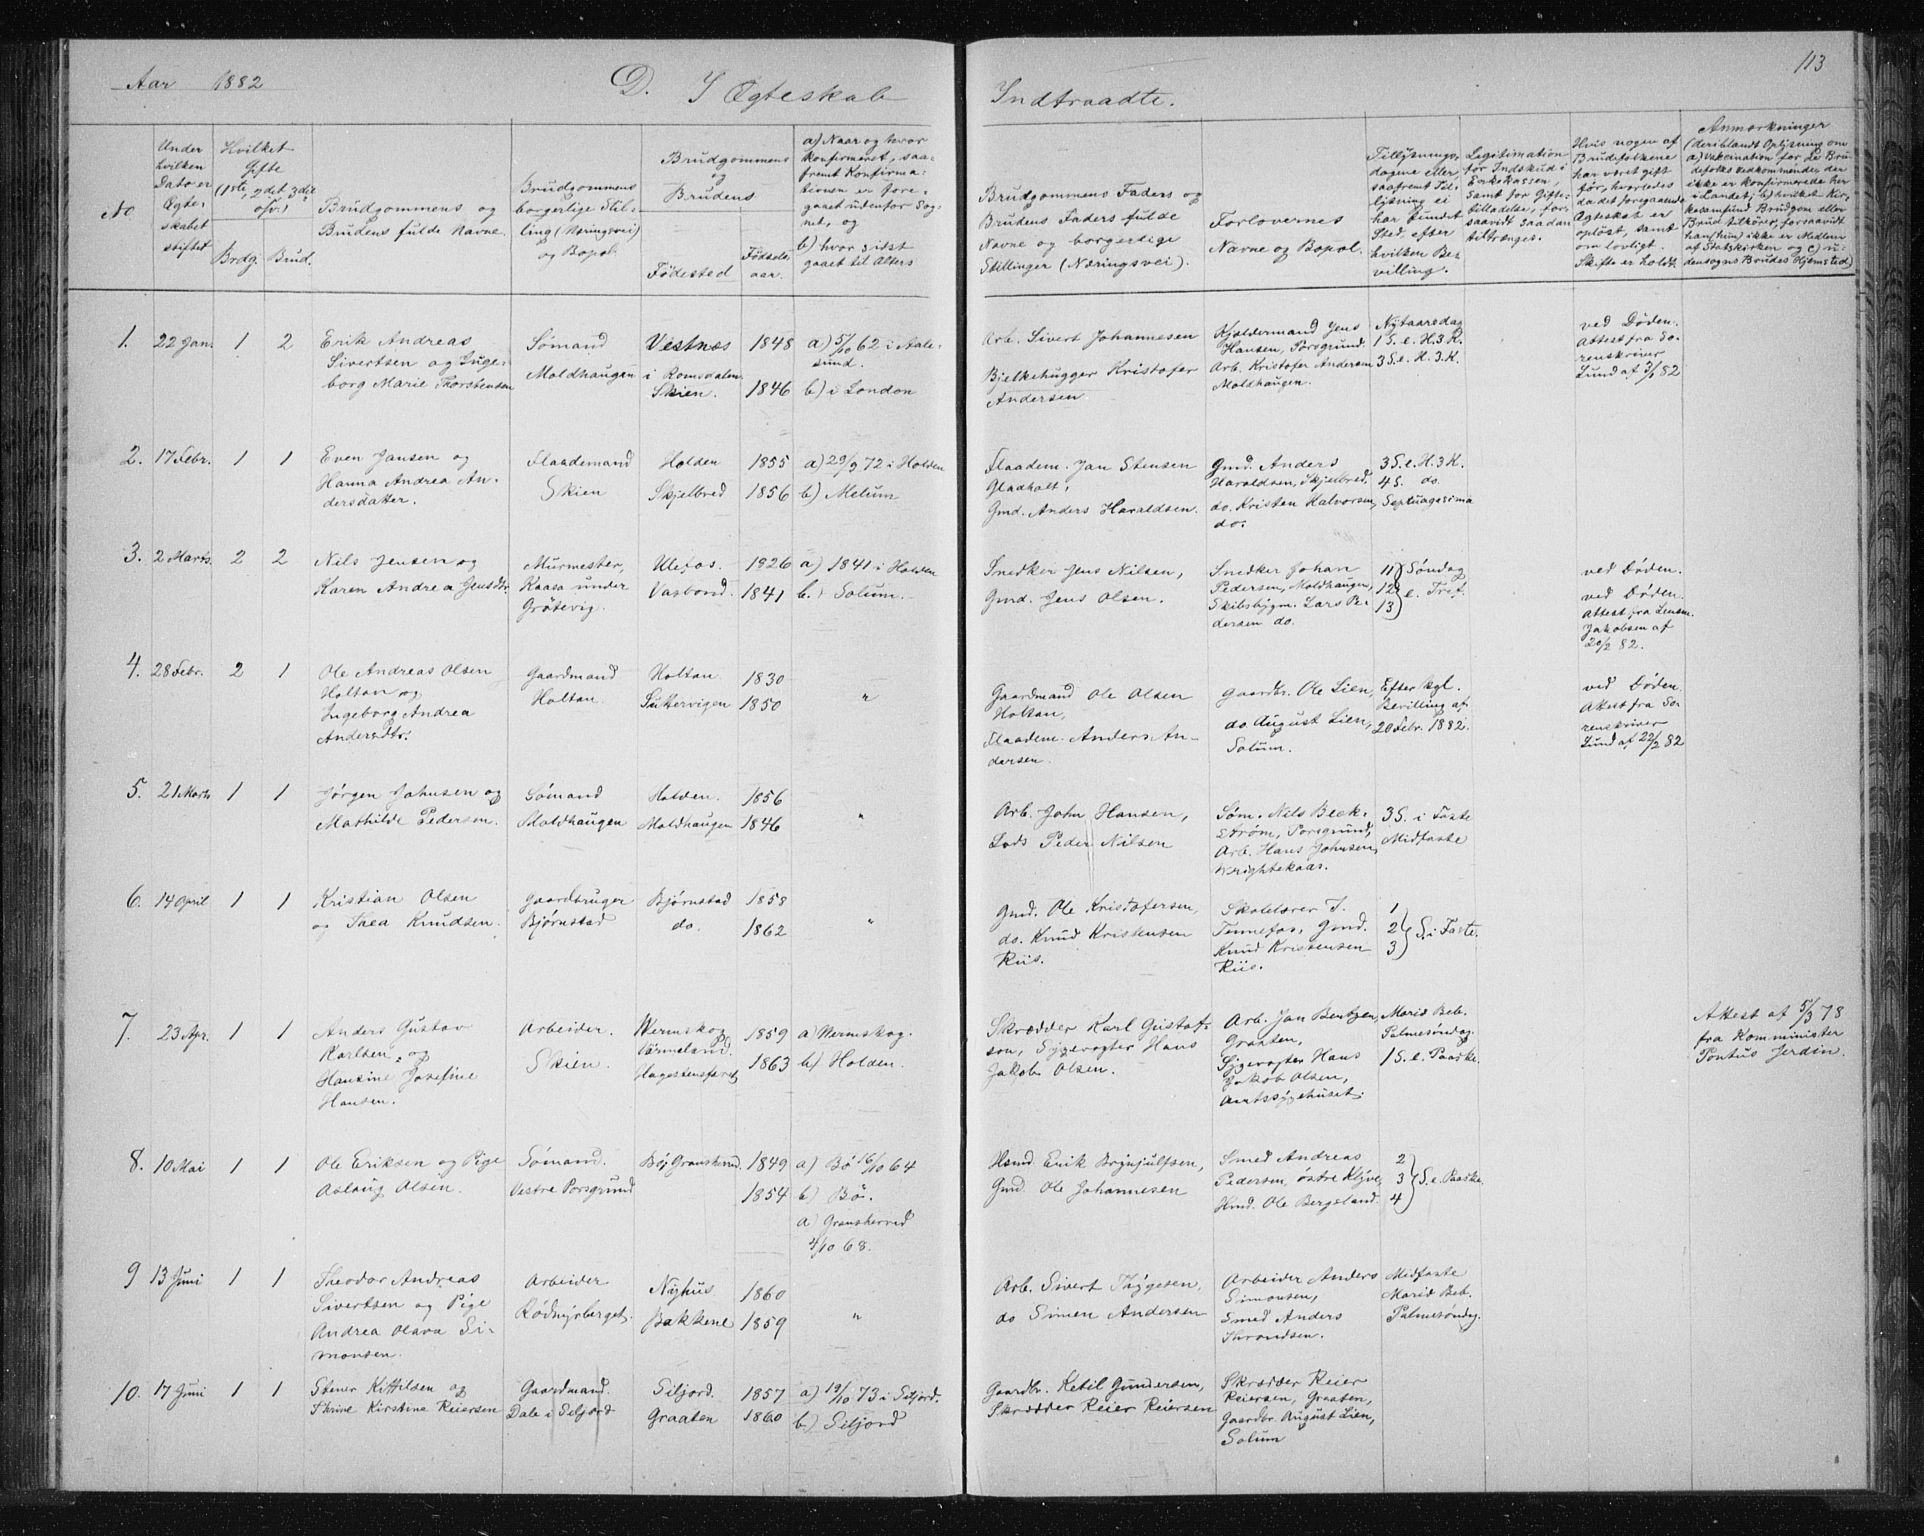 Aar 1882
D. I Ægteskab Indtraadte.
113
No
Under
hvilken
Dato er
Ægte-
skabet
stiftet
Hvilket
Gifte
(1ste, 2det, 3die
osv.)
Brdg. Brud.
Brudgommens og
Brudens fulde Navne.
Brudgommens
borgerlige Stil-
ling (Næringsvei)
og Bopæl.
Brudgommens
og
Brudens
Fødested
Fødsels-
aar.
a) Naar og hvor
konfirmeret, saa-
fremt Konfirma-
tionen er fore-
gaaet udenfor Sog-
net, og
b) hvor sidst
gaaet til Alters
Brudgommens Faders og
Brudens Faders fulde
Navne og borgerlige
Stillinger (Næringsvei).
Forlovernes
Navne og Bopæl.
Tillysnings-
dagene eller
saafremt Til-
lysning ei
har fundet
Sted, efter
hvilken Be-
villing.
Legitimation
for Indskud i
Enkekassen,
samt for Gifte-
tilladelse, for-
saavidt saadan
tiltrænges.
Hvis nogen af
Brudefolkene
har været gift
før, hvorledes
da det foregaaende
Ægteskab er
opløst, samt
om lovligt
Skifte er holdt.
Anmærkninger
(deriblandt Oplysning om
a) Vakcination for de Bru-
defolks vedkommende, der
ikke er konfirmerede her
i Landet, b) hvilket Kir-
kesamfund Brudgom eller
Brud tilhører, forsaavidt
han (hun) ikke er Medlem
af Statskirken og c) u-
densogns Brudes Hjemsted)
1. 22 Jan. 1 2
Erik Andreas
Sivertsen og Inge-
borg Marie Thorstensen
Sømand
Moldhaugen
Vestnæs
i Romsdalen
Skien.
1848
1846
a) 5/10 62 i Aale-
sund.
b) i London
Arb. Sivert Johannesen
Bjelkehugger Kristofer
Andersen
Kjældermand Jens
Hansen, Porsgrund.
Arb. Kristofer Andersen
Moldhaugen.
Nytaarsdag
1 S. e. H. 3 K.
3 S. e. H. 3. K.
ved Døden.
Attest fra So-
renskriver
Lund af 3/1 82
2. 17 Febr. 1 1
Even Jansen og
Hanna Andrea An-
dersdatter.
Flaademand
Skien
Holden
Skjelbred
1855
1856
a) 29/9 72 i Holden
b) Melum
Flaadem. Jan Stensen
Gladholt,
Gmd. Anders Haraldsen.
Gmd. Anders
Haraldsen, Skjelbred,
do. Kristen Halvorsen,
do.
3 S. e. H. 3 K.
4 S. do.
Septuagesima
3. 2 Marts. 2 2
Nils Jensen og
Karen Andrea Jensdtr.
Murmester,
Kaasa under
Grøtevig.
Ulefos.
Vasbond.
1826
1841
a) 1841 i Holden
b. i Solum.
Snedker Jens Nilsen,
Gmd. Jens Olsen.
Snedker Johan
Pedersen, Moldhaugen,
Skibsbygm. Lars Pe-
dersen do.
11
12
13
Søndag
e. Tref.
ved Døden.
ved Døden.
Attest fra Lensm.
Jakobsen af
20/2 82.
4. 28 Febr. 2 1
Ole Andreas Olsen
Holtan og
Ingeborg Andrea
Andersdtr.
Gaardmand
Holtan.
Holtan
Sukervigen
1830
1850
"
Gaardmand Ole Olsen
Holtan,
Flaadem. Anders An-
dersen.
Gaardbr. Ole Lien,
do. August Lien,
Solum.
Efter kgl.
Bevilling af
20 Febr. 1882.
ved Døden.
Attest fra So-
renskriver
Lund af 22/2 82
5. 21 Marts 1 1
Jørgen Johnsen og
Mathilde Pedersen.
Sømand
Moldhaugen
Holden.
Moldhaugen
1856
1846
"
Arb. John Hansen,
Lods Peder Nilsen
Søm. Nils Beck-
strøm, Porsgrund,
Arb. Hans Johnsen,
Wrightekaas.
3 S. i Faste
Midfaste
6. 14 April 1 1
Kristian Olsen
og Thea Knudsen.
Gaardbruger
Bjørnstad
Bjørnstad
do.
1858
1862
"
Gmd. Ole Kristofersen,
do. Knud Kristensen
Riis.
Skolelærer T.
Tinnefos, Gmd.
Knud Kristensen
Riis.
1
2
3
S. i Faste.
7. 23 Apr. 1 1
Anders Gustav
Karlsen, og
Hansine Josefine
Hansen.
Arbeider.
Skien.
Wermskog
Värmeland.
Hagestensferet
1859
1863
a Wermskog.
b) Holden.
Skrædder Karl Gustaf-
son, Sygevogter Hans
Jakob Olsen.
Arb. Jan Bentzen,
Graaten,
Sygevogter Hans
Jakob Olsen,
Amtssygehuset.
Mariæ Beb.
Palmesøndag.
1 S. e. Paaske.
Attest af 5/3 78
fra Komminister
Pontus Jerdin.
8. 10 Mai 1 1
Ole Eriksen og Pige
Aslaug Olsen.
Sømand.
Vestre Porsgrund
Bø, Gransherred.
1849
1854
a) Bø 16/10 64
b) Bø.
a) Gransherred
4/10 68.
Hsmd. Erik Brynjulfsen,
Gmd. Ole Johannesen
Smed Andreas
Pedersen, østre Klyve,
Hmd. Ole Bergsland.
2
3
4
S. e. Paaske.
9 13 Juni 1 1
Theodor Andreas
Sivertsen og Pige
Andrea Olava Si-
monsen.
Arbeider
Rødmyrberget.
Nyhus
Bakkene
1860
1859
"
Arb. Sivert Thygesen,
do Simen Andersen
Arbeider Anders
Simonsen,
Smed Anders
Throndsen.
Midfaste
Mariæ Beb.
Palmesøndag.
10. 17 Juni 1 1
Stener Kittilsen og
Thrine Kirstine Reiersen
Gaardmand.
Dale i Siljord
Siljord.
Graaten
1857
1860
a) 19/10 73 i Siljord.
b) Siljord
Gaardbr. Ketil Gundersen,
Skrædder Reier Reiersen
Skrædder Reier
Reiersen, Graaten,
Gaardbr. August Lien,
Solum